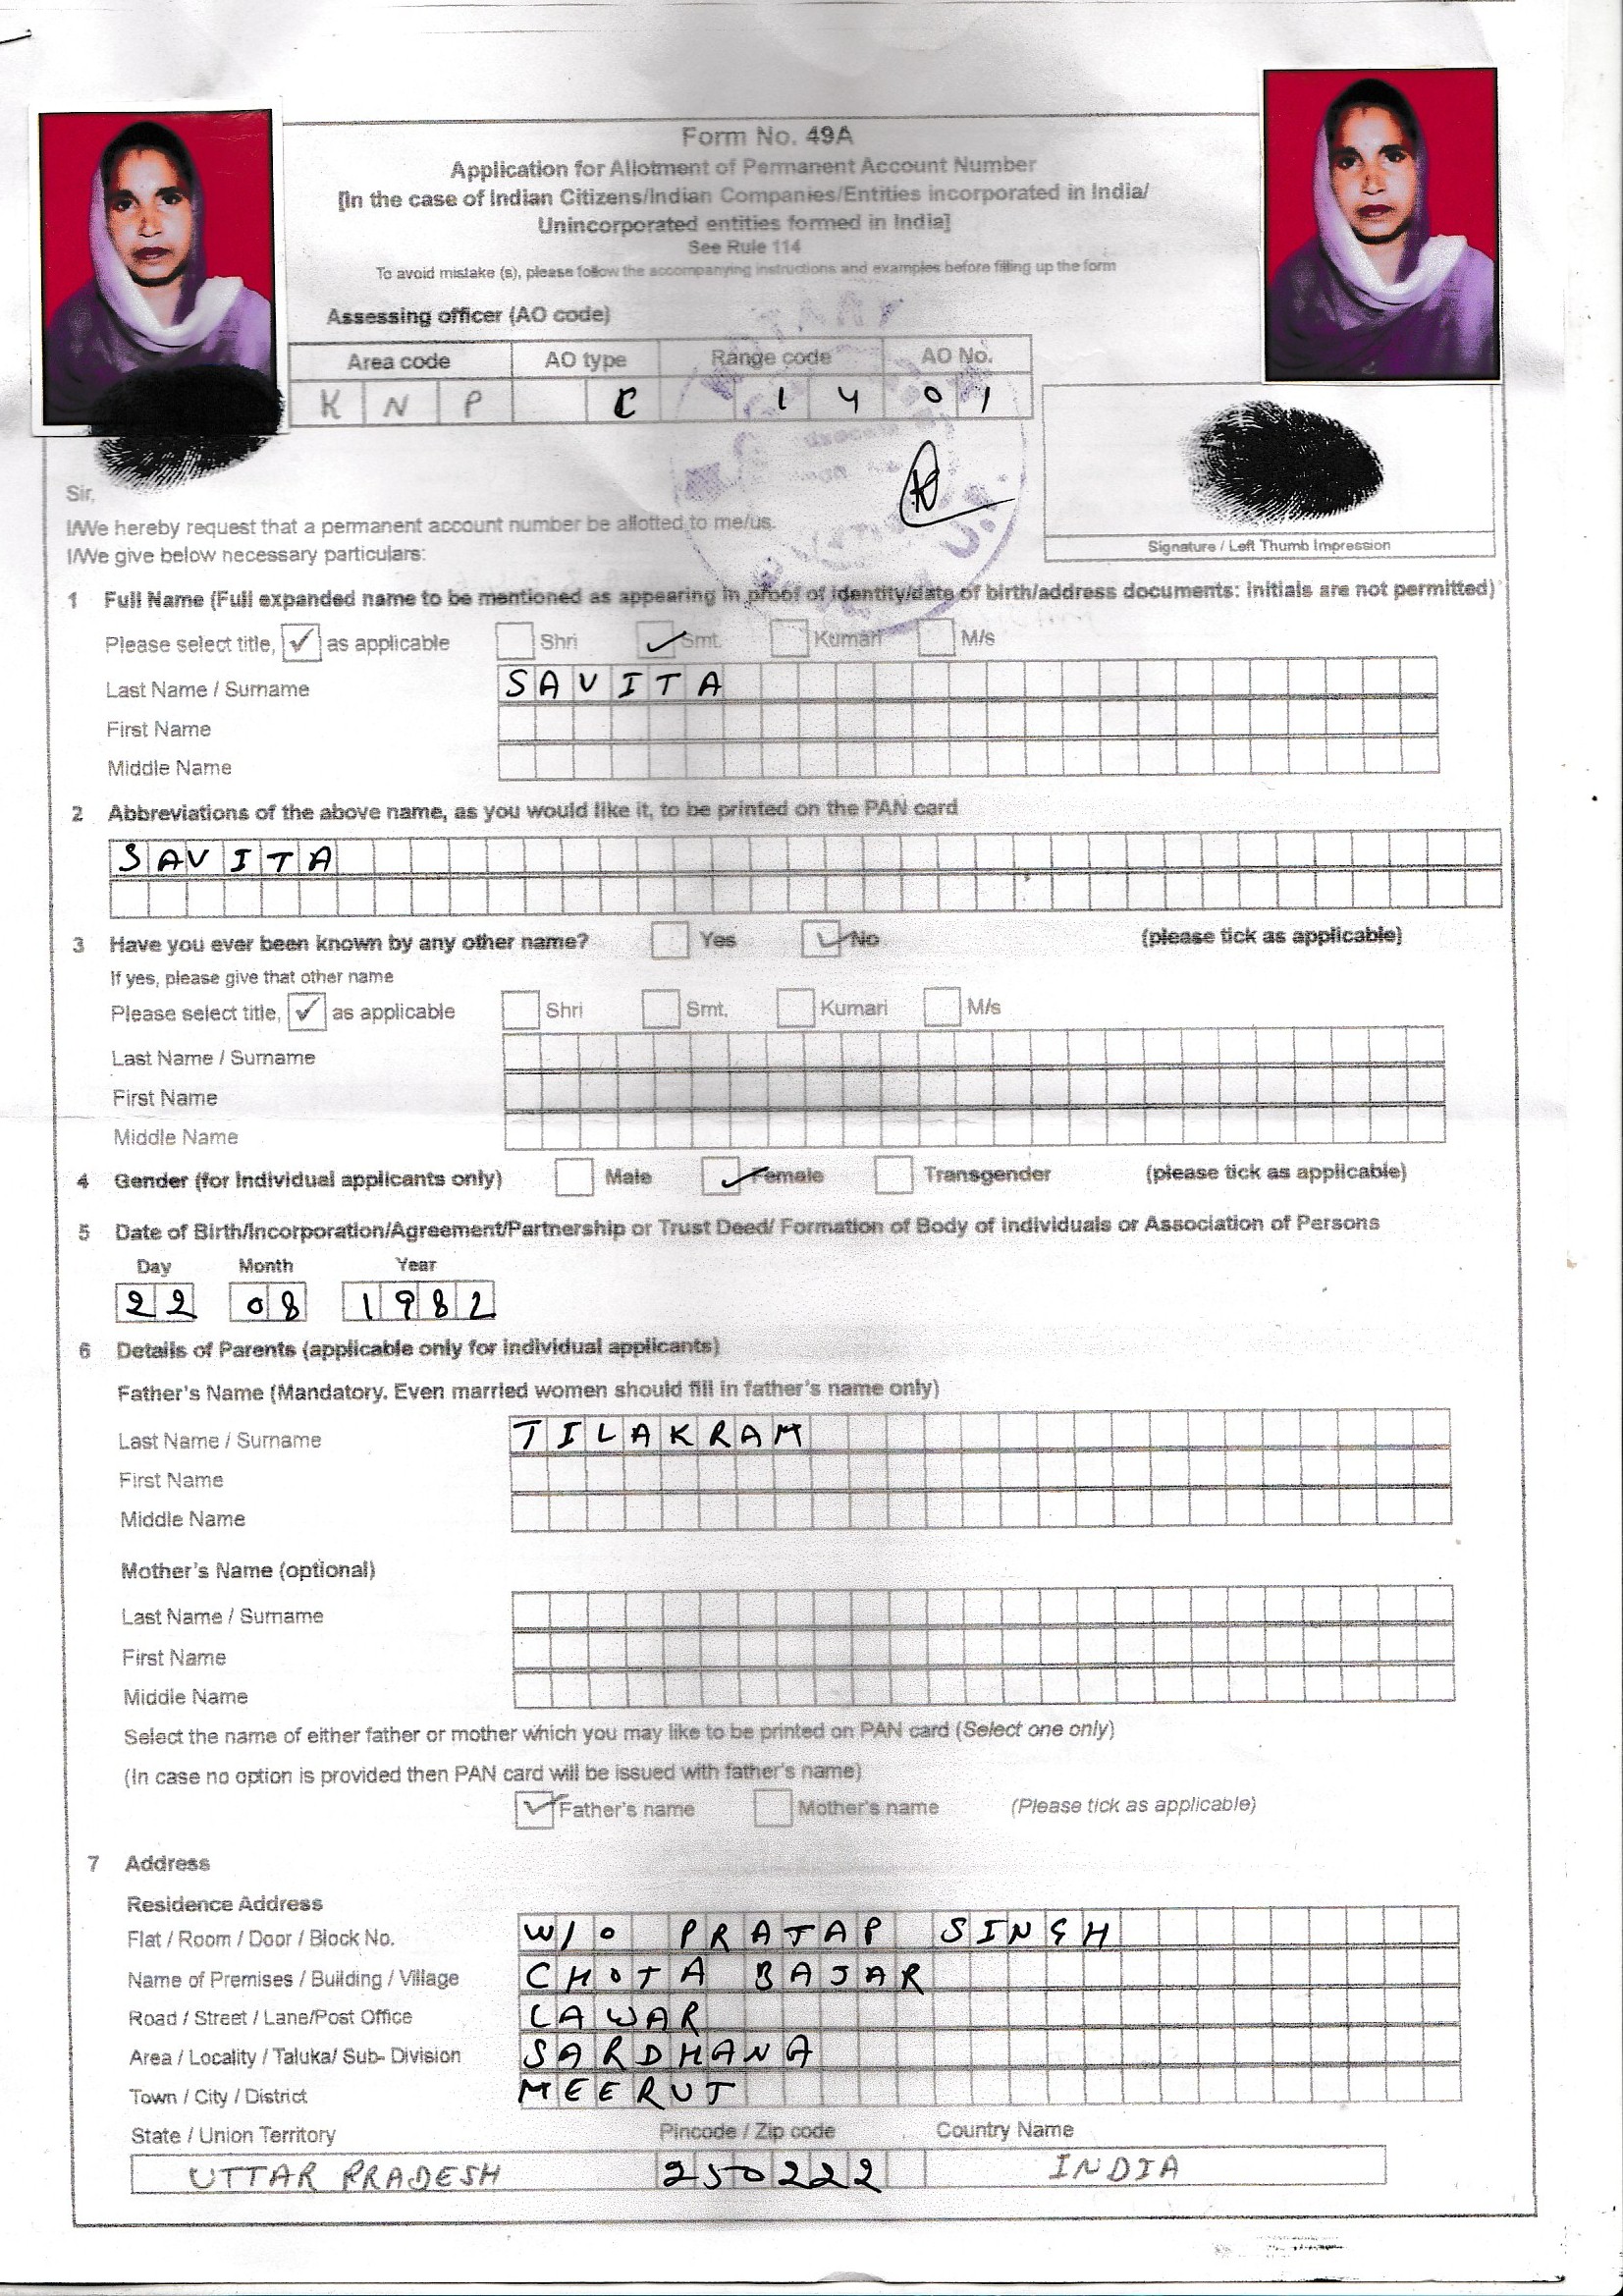 Form No. 49A
Application for Allotment of Permanent Account Number
[In the case of Indian Citizens/Indian Companies/Entities incorporated in India/
Unincorporated entities formed in India]
See Rule 114
To avoid mistake (s), please follow the accompanying instructions and examples before filling up the form
Assessing officer (AO code)
Area code AO type Range code AO No.
K N P C 1 4 0 1
Signature / Left Thumb Impression
Sir,
I/We hereby request that a permanent account number be allotted to me/us.
I/We give below necessary particulars:
1 Full Name (Full expanded name to be mentioned as appearing in proof of identity/date of birth/address documents: initials are not permitted)
Please select title, ✓ as applicable Shri ✓ Smt. Kumari M/s
Last Name / Surname SAVITA
First Name
Middle Name
2 Abbreviations of the above name, as you would like it, to be printed on the PAN card
SAVITA
3 Have you ever been known by any other name? Yes ✓ No (please tick as applicable)
If yes, please give that other name
Please select title, ✓ as applicable Shri Smt. Kumari M/s
Last Name / Surname
First Name
Middle Name
4 Gender (for individual applicants only) Male ✓ Female Transgender (please tick as applicable)
5 Date of Birth/Incorporation/Agreement/Partnership or Trust Deed/ Formation of Body of individuals or Association of Persons
Day Month Year
22 08 1982
6 Details of Parents (applicable only for individual applicants)
Father's Name (Mandatory. Even married women should fill in father's name only)
Last Name / Surname TILAKRAM
First Name
Middle Name
Mother's Name (optional)
Last Name / Surname
First Name
Middle Name
Select the name of either father or mother which you may like to be printed on PAN card (Select one only)
(In case no option is provided then PAN card will be issued with father's name)
✓ Father's name Mother's name (Please tick as applicable)
7 Address
Residence Address
Flat / Room / Door / Block No. W/O PRATAP SINGH
Name of Premises / Building / Village CHOTA BAJAR
Road / Street / Lane/Post Office LAWAR
Area / Locality / Taluka/ Sub- Division SARDHANA
Town / City / District MEERUT
State / Union Territory Pincode / Zip code Country Name
UTTAR PRADESH 250222 INDIA